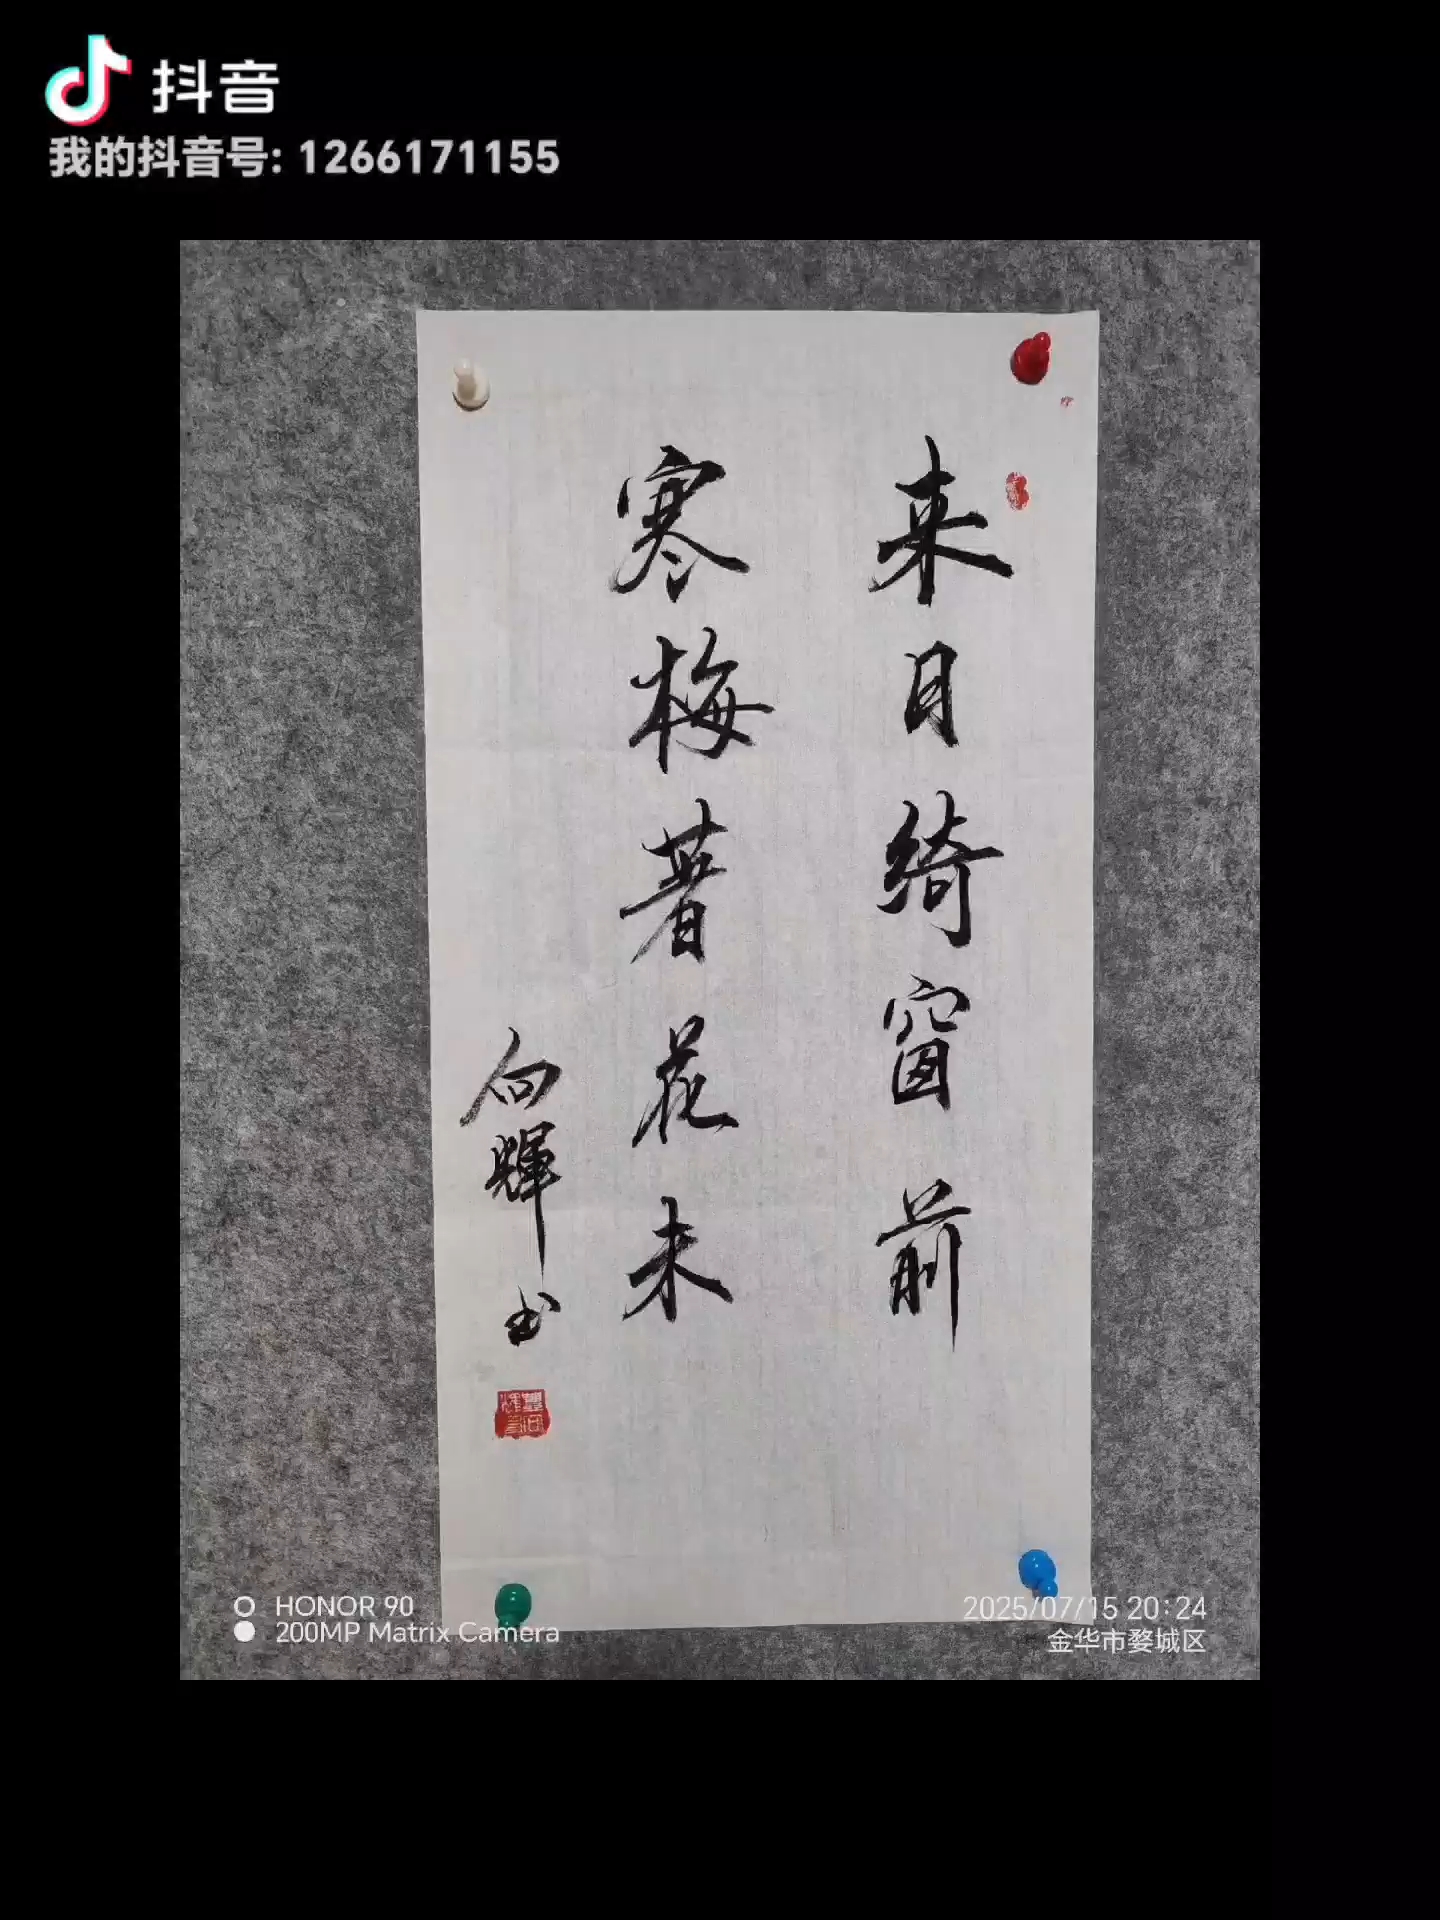 抖音
我的抖音号: 1266171155
来日绮窗前
寒梅著花未
向辉书
HONOR 90
200MP Matrix Camera
2025/07/15 20:24
金华市婺城区